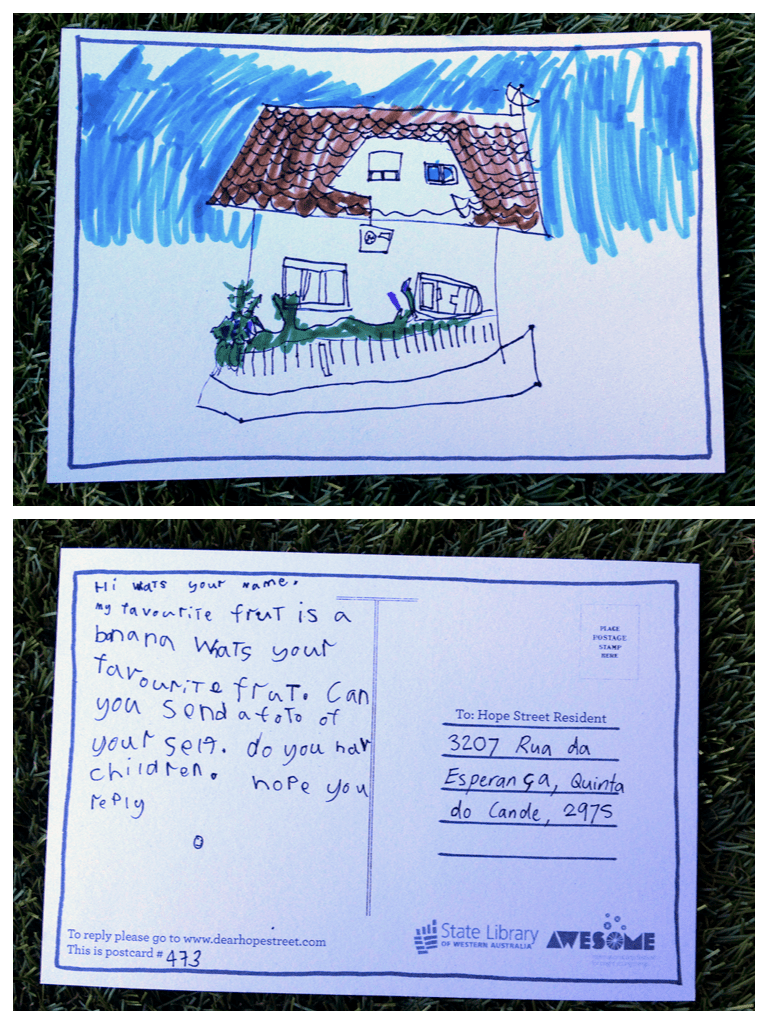 Hi wats your name.
my favourite frut is a
banana wats your
favourite frut. Can
you send a foto of
your self. do you hav
children. hope you
reply
To reply please go to www.dearhopestreet.com
This is postcard # 473
PLACE
POSTAGE
STAMP
HERE
To: Hope Street Resident
3207 Rua da
Esperança, Quinta
do Conde, 2975
State Library
OF WESTERN AUSTRALIA
AWESOME